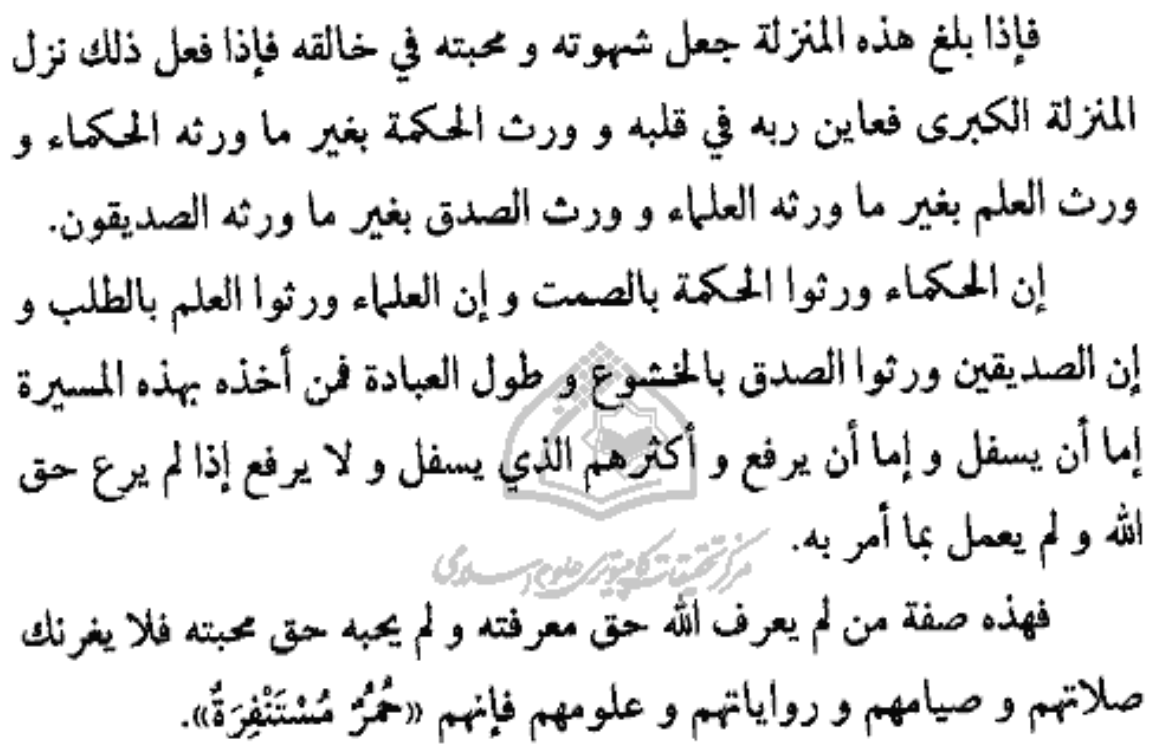 فإذا بلغ هذه المنزلة جعل شهوته و محبته في خالقه فإذا فعل ذلك نزل
المنزلة الكبرى فعاين ربه في قلبه و ورث الحكمة بغير ما ورثه الحكماء و
ورث العلم بغير ما ورثه العلماء و ورث الصدق بغير ما ورثه الصديقون.
إن الحكماء ورثوا الحكمة بالصمت و إن العلماء ورثوا العلم بالطلب و
إن الصديقين ورثوا الصدق بالخشوع و طول العبادة فمن أخذه بهذه المسيرة
إما أن يسفل و إما أن يرفع و أكثرهم الذي يسفل و لا يرفع إذا لم يرع حق
الله و لم يعمل بما أمر به.
مرکز تحقیقات کامپیوتری علوم اسلامی
فهذه صفة من لم يعرف الله حق معرفته و لم يحبه حق محبته فلا يغرنك
صلاتهم و صيامهم و رواياتهم و علومهم فإنهم «حُمُرٌ مُسْتَنْفِرَةٌ».